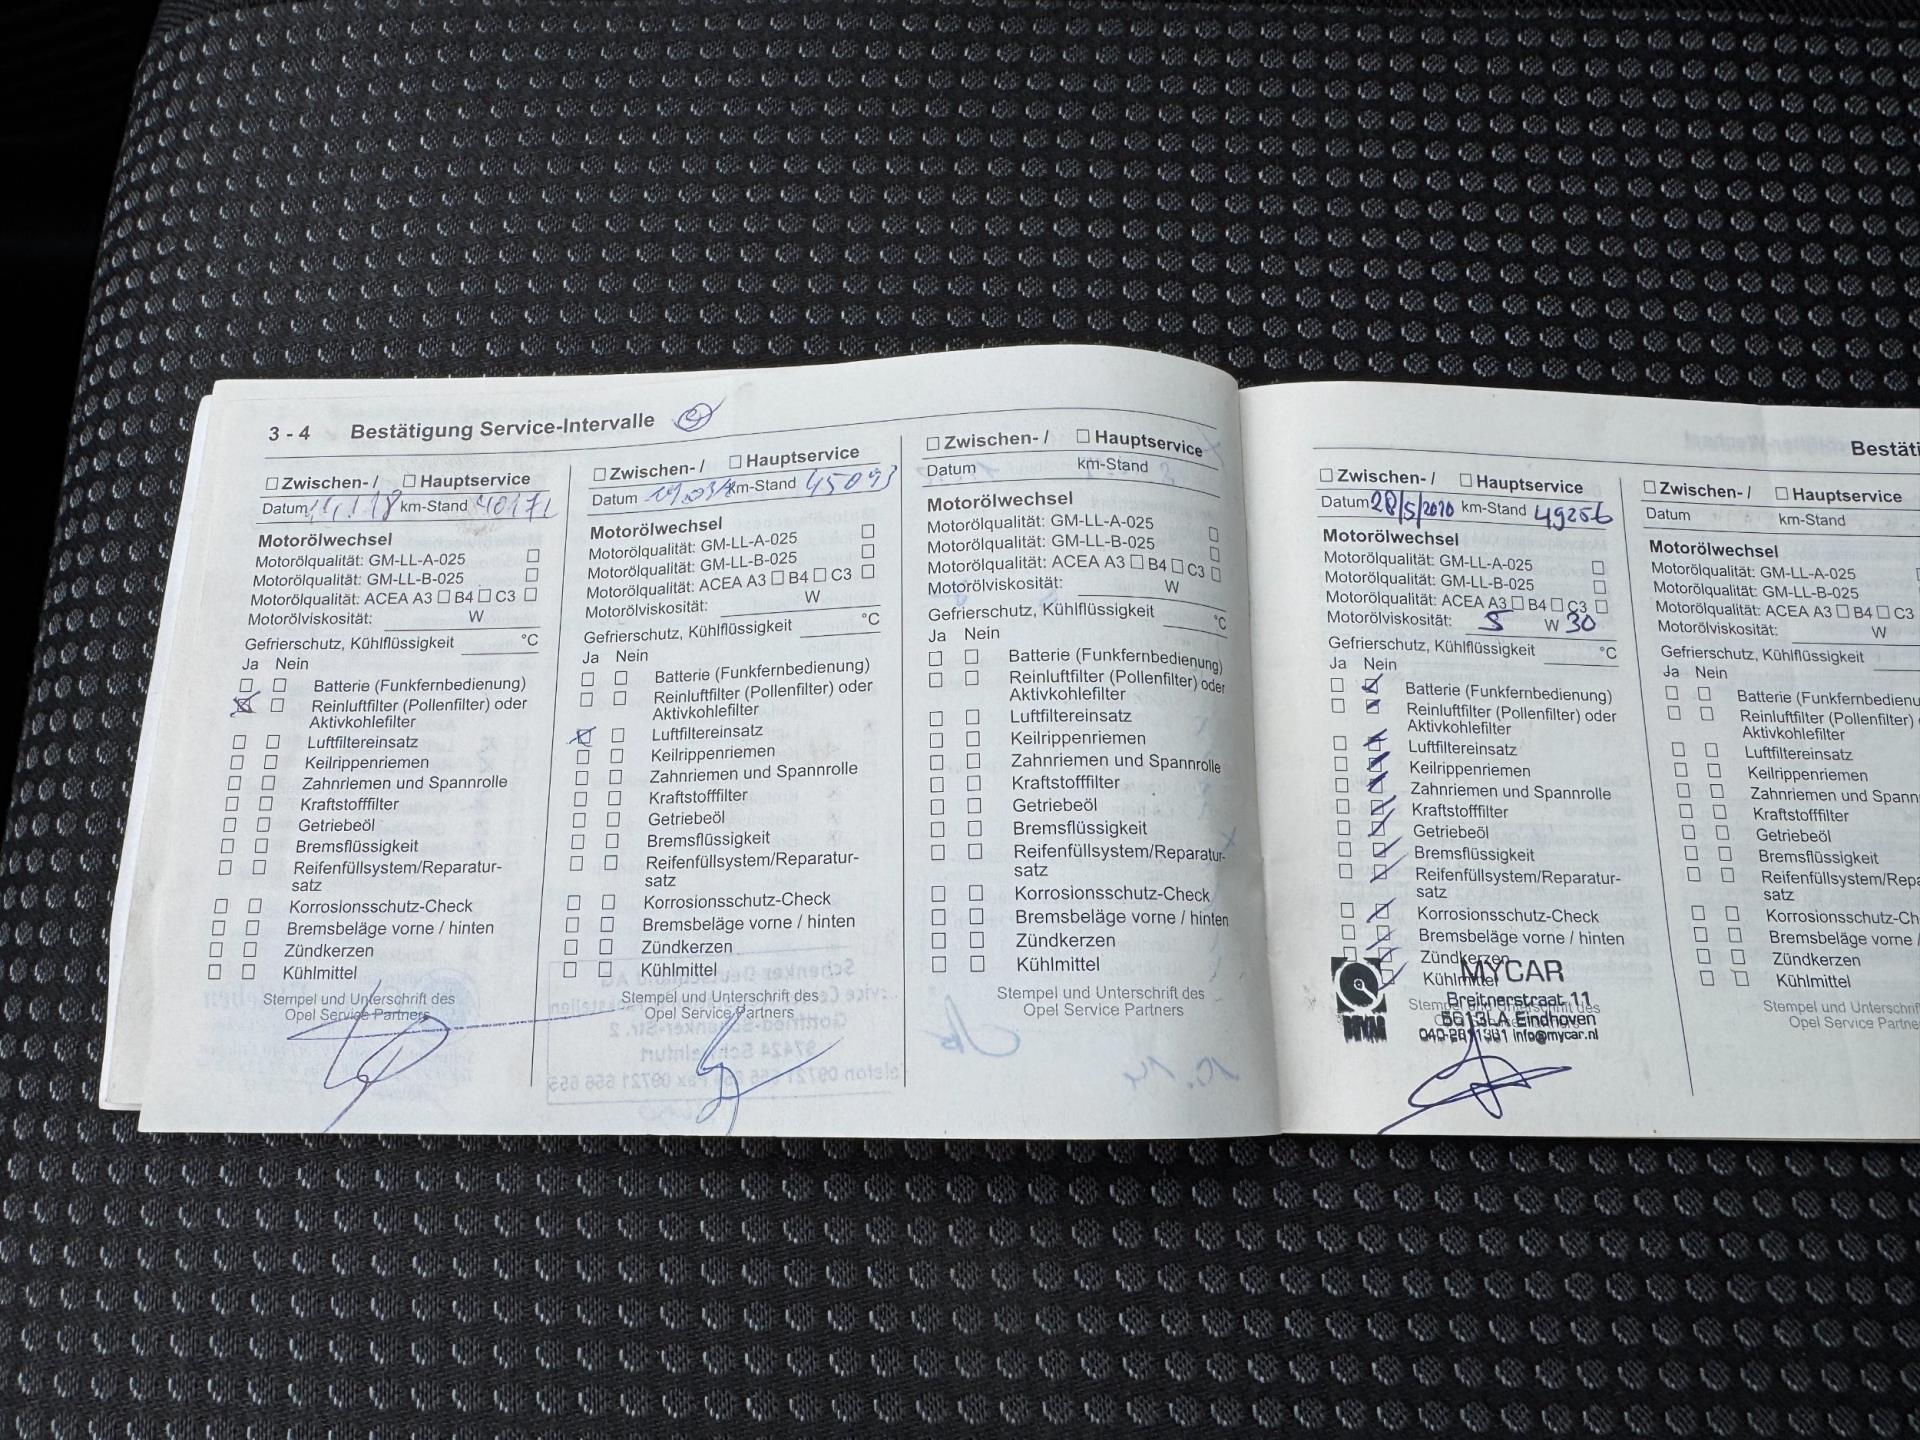 3 - 4 Bestätigung Service-Intervalle
Zwischen- / Hauptservice
Datum km-Stand 40171
Motorölwechsel
Motorölqualität: GM-LL-A-025
Motorölqualität: GM-LL-B-025
Motorölqualität: ACEA A3 B4 C3
Motorölviskosität: W
Gefrierschutz, Kühlflüssigkeit °C
Ja Nein
Batterie (Funkfernbedienung)
Reinluftfilter (Pollenfilter) oder
Aktivkohlefilter
Luftfiltereinsatz
Keilrippenriemen
Zahnriemen und Spannrolle
Kraftstofffilter
Getriebeöl
Bremsflüssigkeit
Reifenfüllsystem/Reparatur-
satz
Korrosionsschutz-Check
Bremsbeläge vorne / hinten
Zündkerzen
Kühlmittel
Stempel und Unterschrift des
Opel Service Partners
Zwischen- / Hauptservice
Datum km-Stand 45093
Motorölwechsel
Motorölqualität: GM-LL-A-025
Motorölqualität: GM-LL-B-025
Motorölqualität: ACEA A3 B4 C3
Motorölviskosität: W
Gefrierschutz, Kühlflüssigkeit °C
Ja Nein
Batterie (Funkfernbedienung)
Reinluftfilter (Pollenfilter) oder
Aktivkohlefilter
Luftfiltereinsatz
Keilrippenriemen
Zahnriemen und Spannrolle
Kraftstofffilter
Getriebeöl
Bremsflüssigkeit
Reifenfüllsystem/Reparatur-
satz
Korrosionsschutz-Check
Bremsbeläge vorne / hinten
Zündkerzen
Kühlmittel
Stempel und Unterschrift des
Opel Service Partners
Zwischen- / Hauptservice
Datum km-Stand
Motorölwechsel
Motorölqualität: GM-LL-A-025
Motorölqualität: GM-LL-B-025
Motorölqualität: ACEA A3 B4 C3
Motorölviskosität: W
Gefrierschutz, Kühlflüssigkeit °C
Ja Nein
Batterie (Funkfernbedienung)
Reinluftfilter (Pollenfilter) oder
Aktivkohlefilter
Luftfiltereinsatz
Keilrippenriemen
Zahnriemen und Spannrolle
Kraftstofffilter
Getriebeöl
Bremsflüssigkeit
Reifenfüllsystem/Reparatur-
satz
Korrosionsschutz-Check
Bremsbeläge vorne / hinten
Zündkerzen
Kühlmittel
Stempel und Unterschrift des
Opel Service Partners
Bestäti
Zwischen- / Hauptservice
Datum 28/5/2020 km-Stand 49256
Motorölwechsel
Motorölqualität: GM-LL-A-025
Motorölqualität: GM-LL-B-025
Motorölqualität: ACEA A3 B4 C3
Motorölviskosität: 5 W 30
Gefrierschutz, Kühlflüssigkeit °C
Ja Nein
Batterie (Funkfernbedienung)
Reinluftfilter (Pollenfilter) oder
Aktivkohlefilter
Luftfiltereinsatz
Keilrippenriemen
Zahnriemen und Spannrolle
Kraftstofffilter
Getriebeöl
Bremsflüssigkeit
Reifenfüllsystem/Reparatur-
satz
Korrosionsschutz-Check
Bremsbeläge vorne / hinten
Zündkerzen
Kühlmittel
MYCAR
Breitnerstraat 11
5613LA Eindhoven
info@mycar.nl
Zwischen- / Hauptservice
Datum km-Stand
Motorölwechsel
Motorölqualität: GM-LL-A-025
Motorölqualität: GM-LL-B-025
Motorölqualität: ACEA A3 B4 C3
Motorölviskosität: W
Gefrierschutz, Kühlflüssigkeit
Ja Nein
Batterie (Funkfernbedienu
Reinluftfilter (Pollenfilter)
Aktivkohlefilter
Luftfiltereinsatz
Keilrippenriemen
Zahnriemen und Spann
Kraftstofffilter
Getriebeöl
Bremsflüssigkeit
Reifenfüllsystem/Repara
satz
Korrosionsschutz-Check
Bremsbeläge vorne /
Zündkerzen
Kühlmittel
Stempel und Unterschrift
Opel Service Partne